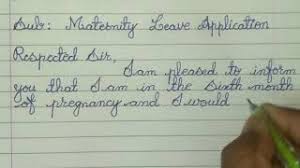 Sub: Maternity Leave Application
Respected Sir,
I am pleased to inform
you that I am in the sixth month
of pregnancy and I would